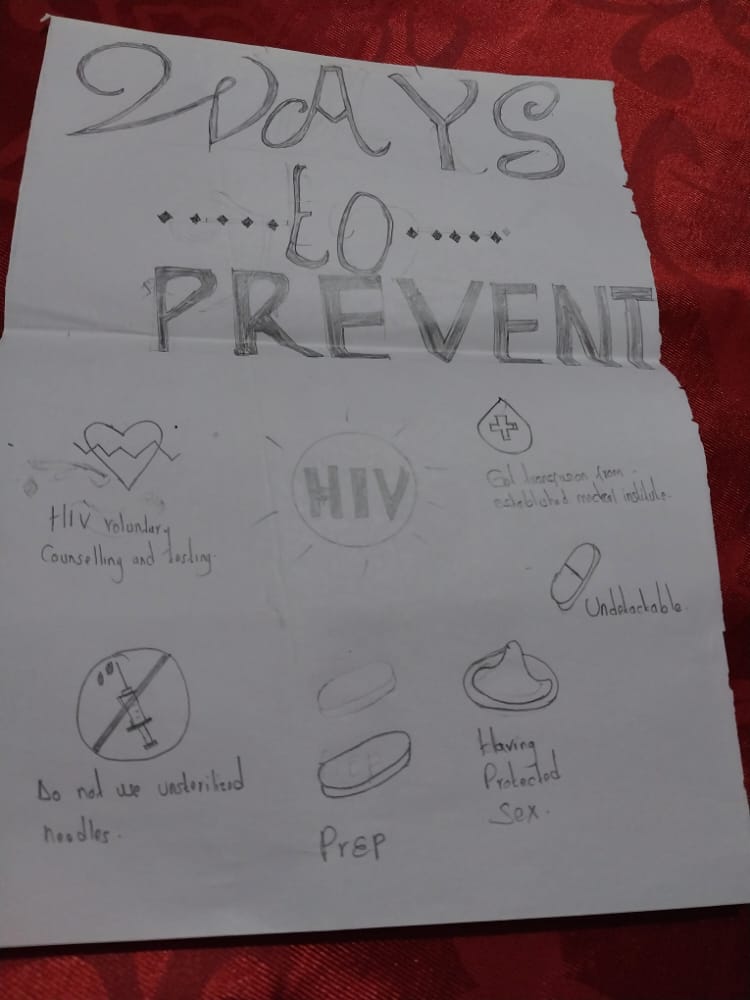 WAYS
to
PREVENT
HIV
HIV voluntary
Counselling and testing.
Get transfusion from
established medical institute.
Undetactable.
Do not use unsterilized
needles.
PrEP
Having
Protected
Sex.